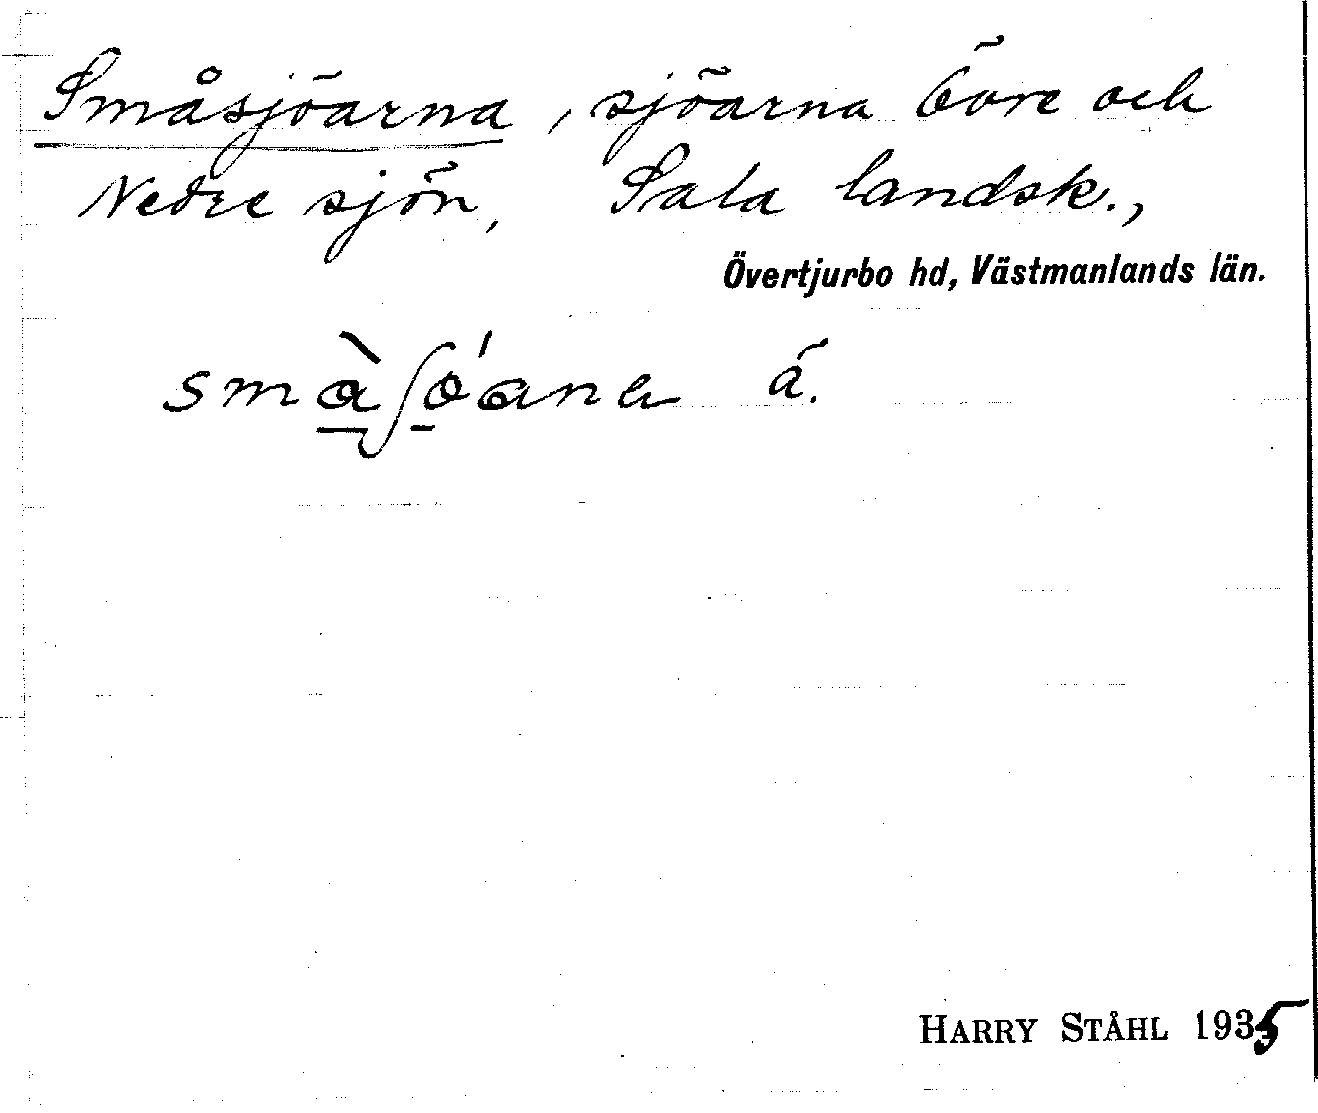 Småsjöarna, sjöarna Övre och
Nedre sjön, Sala landsk.,
Övertjurbo hd, Västmanlands län.
ä.
HARRY STÅHL 1935